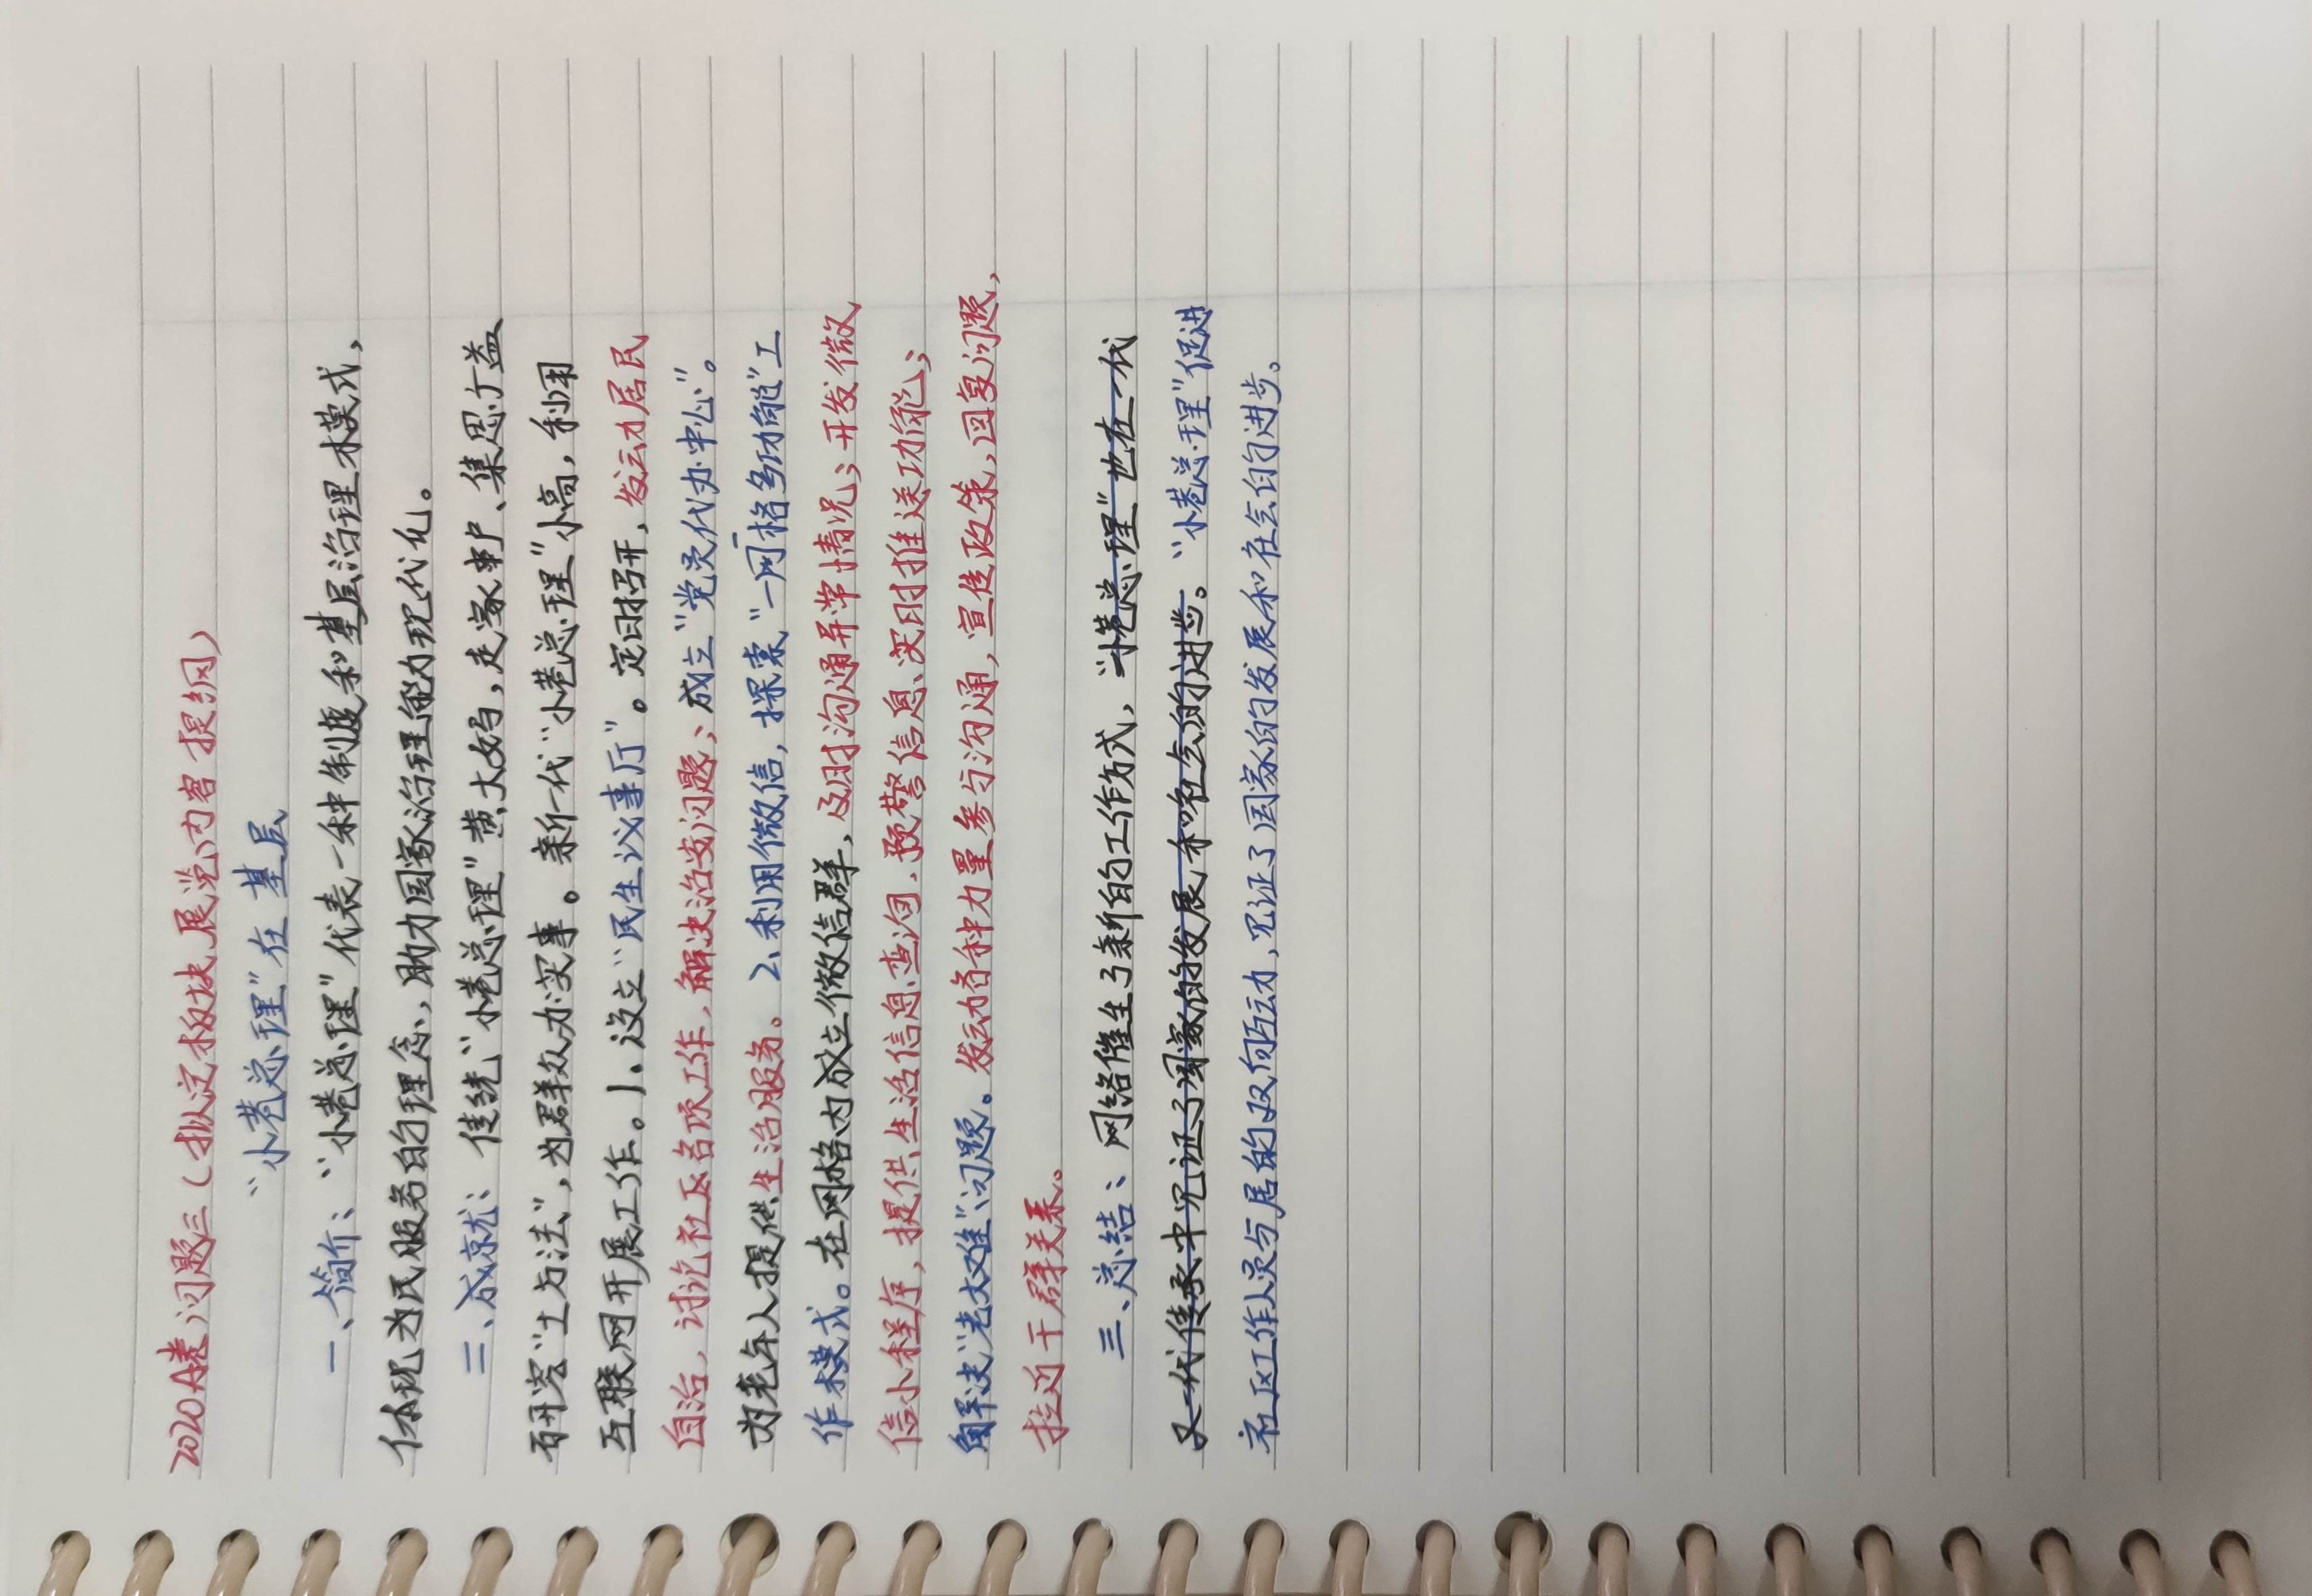 2020A类问题三（拟定板块展览内容提纲）
“小巷总理”在基层
一、简介：“小巷总理”代表一种制度和基层治理模式，
体现为民服务的理念，助力国家治理能力现代化。
二、成就：传统“小巷总理”黄大妈，走家串户、集思广益
研究“土方法”，为群众办实事。新一代“小巷总理”小高，利用
互联网开展工作。1.设立“民生议事厅”。定时招开，发动居民
自治，讨论社区各项工作，解决治安问题；成立“党员代办中心”。
为老年人提供生活服务。2、利用微信，探索“一网格多功能”工
作模式。在网格内成立微信群，及时沟通异常情况；开发微
信小程序，提供生活信息查询，预警信息实时推送功能；
解决“老大难”问题。发动各种力量参与沟通，宣传政策，回复问题，
拉近干群关系。
三、总结：网络催生了新的工作方式，“小巷总理”也在一代
又一代传承中见证了国家的发展和社会的进步。“小巷总理”促进
社区工作人员与居的双向互动，见证了国家的发展和社会的进步。